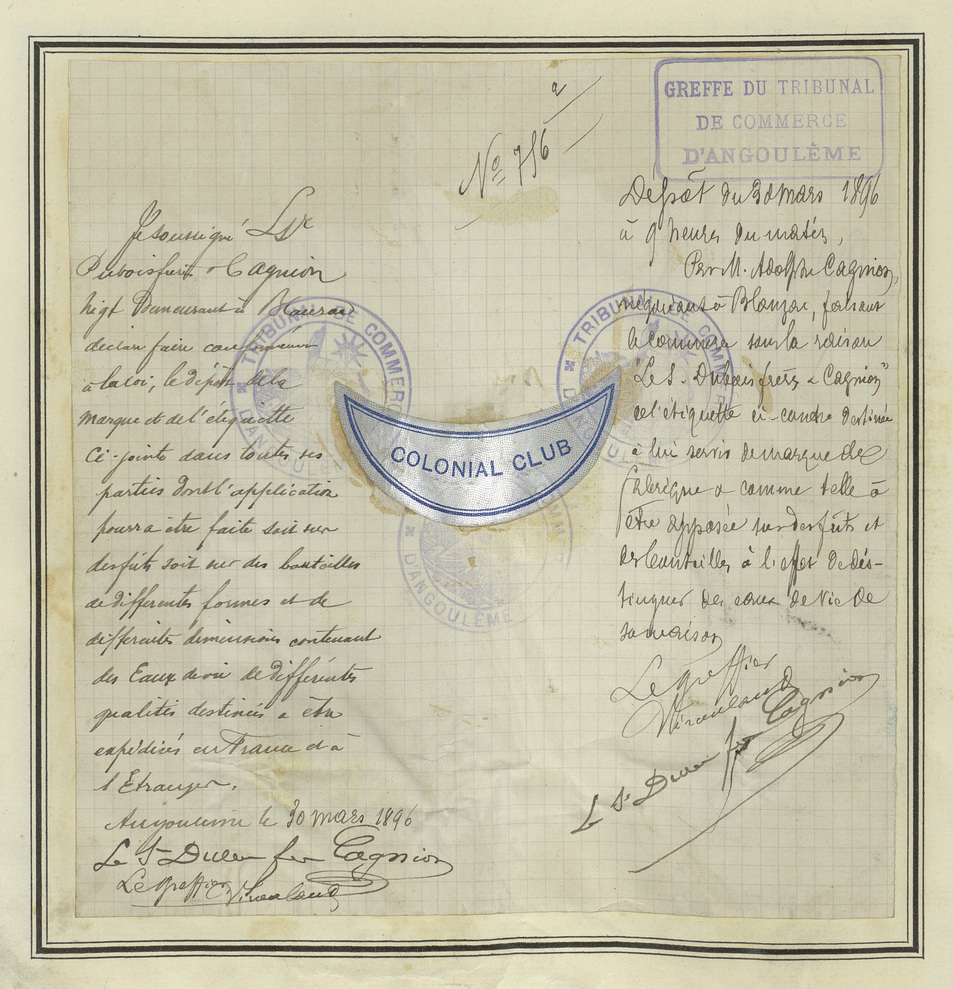 No 756
2
Je soussigné
Dubois frères & Cagnion
Négt Demeurant à Blanzac
déclare faire conformément
à la loi, le dépôt de la
marque et de l'étiquette
Ci-jointe dans toutes ses
parties dont l'application
pourra être faite soit sur
des fûts soit sur des bouteilles
de différentes formes et de
différentes dimensions contenant
des Eaux de vie de différentes
qualités destinées a être
expédiées en France et à
l'Etranger.
Angoulême le 30 mars 1896
Cagnion
Le Greffier
COLONIAL CLUB
TRIBUNAL DE COMMERCE
D'ANGOULÊME
TRIBUNAL DE COMMERCE
D'ANGOULÊME
D'ANGOULÊME
GREFFE DU TRIBUNAL
DE COMMERCE
D'ANGOULÊME
Dépôt du 30 mars 1896
à 9 heures du matin,
Par M. Adolphe Cagnion,
négociant à Blanzac, faisant
le commerce sous la raison
"Le S. Dubois frères & Cagnion"
de l'étiquette ci-contre destinée
à lui servir de marque de
fabrique & comme telle à
être apposée sur des fûts et
des bouteilles à l'effet de dis-
tinguer des eaux de vie de
sa maison
Le greffier
Cagnion